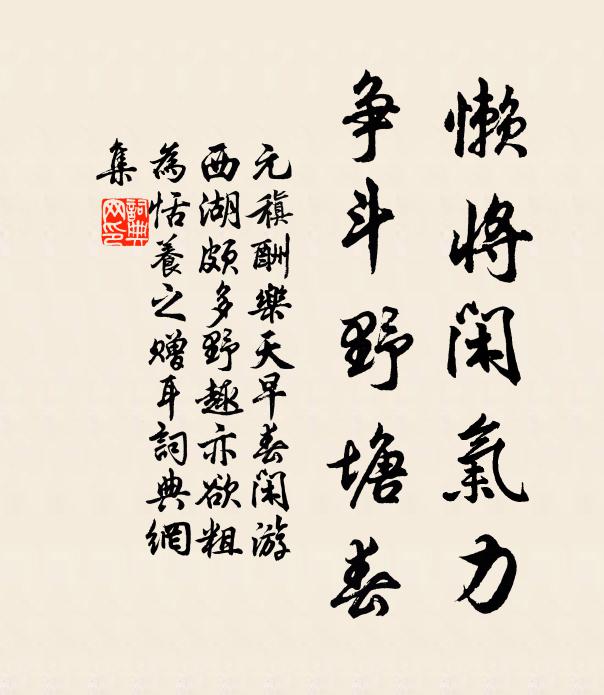 懶將閑氣力
争斗野塘春
元稹酬樂天早春閑游
西湖頗多野趣亦欲粗
為恬養之贈耳詞典網
集
詞典
网印